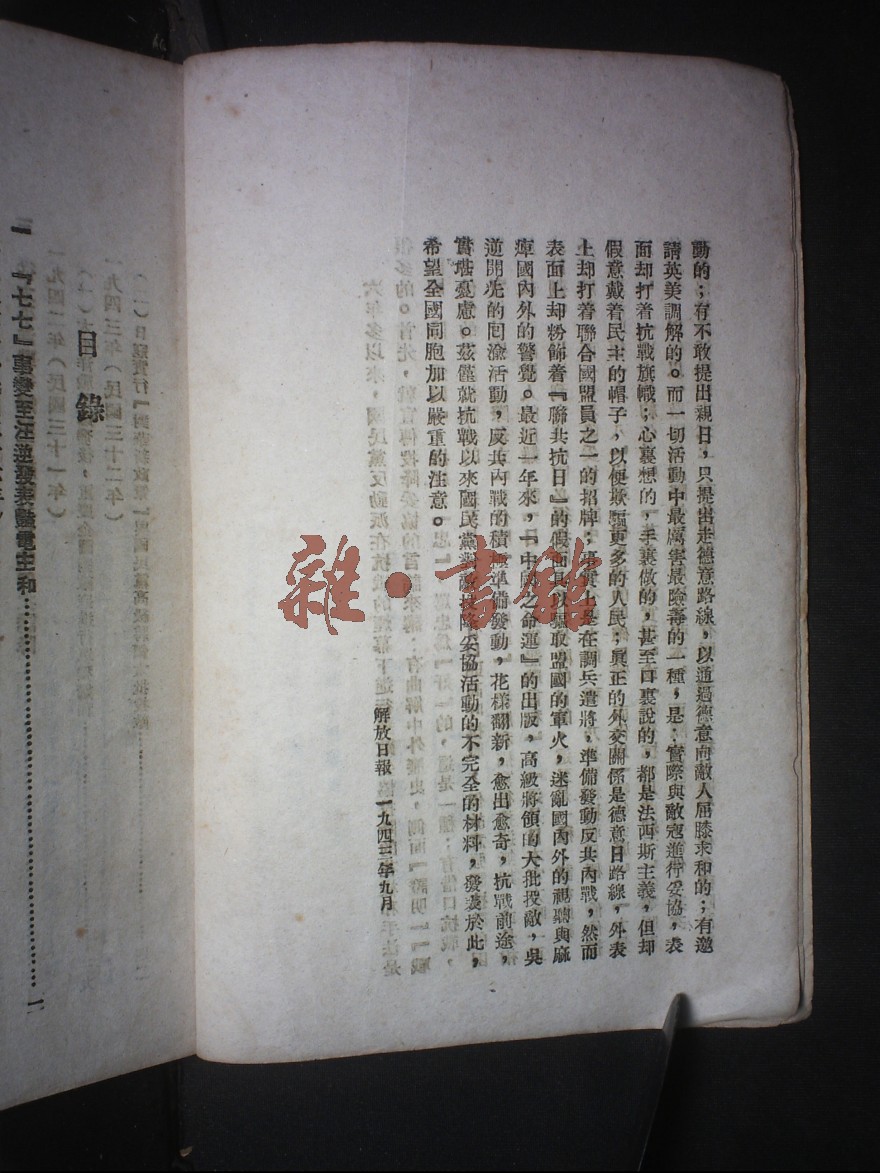 動的；有不敢提出親日，只提出走德意路線，以通過德意向敵人屈膝求和的；有邀
請英美調解的。而一切活動中最厲害最險毒的一種，是：實際與敵寇進行妥協，表
面却打着抗戰旗幟；心裏想的，手裏做的，甚至口裏說的，都是法西斯主義，但却
假意戴着民主的帽子，以便欺騙更多的人民；眞正的外交關係是德意日路線，外表
上却打着聯合國盟員之一的招牌；事實上是在調兵遣將，準備發動反共內戰，然而
表面上却粉飾着『聯共抗日』的假面具以騙取盟國的軍火，迷亂國內外的視聽與麻
痺國內外的警覺。最近一年來，『中國之命運』的出版，高級將領的大批投敵，吳
逆開先的回渝活動，反共內戰的積極準備發動，花樣翻新，愈出愈奇，抗戰前途，
實堪憂慮。茲僅就抗戰以來國民黨對敵投降妥協活動的不完全的材料，發表於此，
希望全國同胞加以嚴重的注意。
解放日報　一九四三年九月
目錄
一　『七七』事變至汪逆發表豔電主和……………………………一
雜·書館